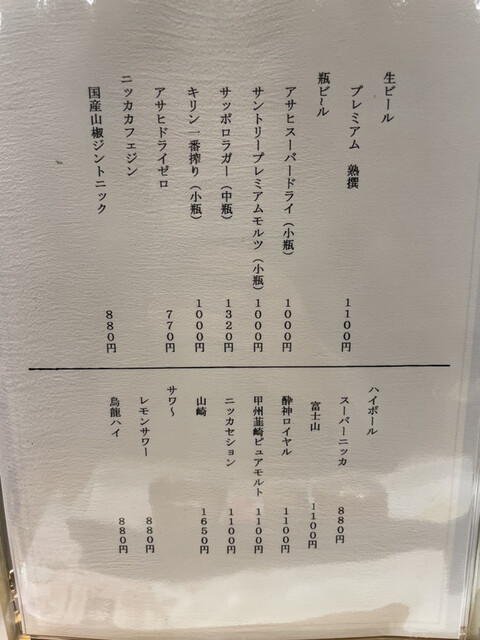 生ビール
プレミアム 熟撰 1100円
瓶ビ〜ル
アサヒスーパードライ(小瓶) 1000円
サントリープレミアムモルツ(小瓶) 1000円
サッポロラガー(中瓶) 1320円
キリン一番搾り(小瓶) 1000円
アサヒドライゼロ 770円
ニッカカフェジン
国産山椒ジントニック 880円
ハイボール
スーパーニッカ 880円
富士山 1100円
酔神ロイヤル 1100円
甲州韮崎ピュアモルト 1100円
ニッカセション 1100円
山崎 1650円
サワ〜
レモンサワー 880円
烏龍ハイ 880円